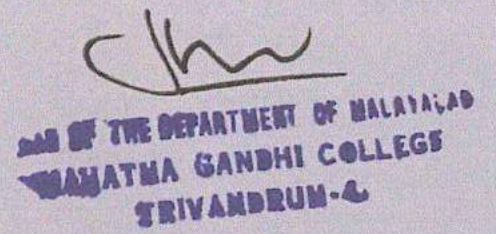 OF THE DEPARTMENT OF MALAYALAD
MAHATMA GANDHI COLLEGE
TRIVANDRUM-4